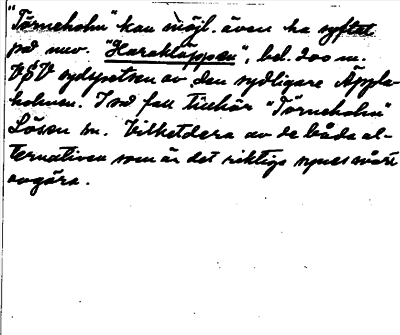 "Törneholm" kan möjl. även ha syftat
på nuv. "Haraklappen", bel. 200 m.
VSV sydspetsen av den sydligare Äppla-
holmen. I så fall tillhör "Törneholm"
Lösen sn. Vilketdera av de båda al-
ternativen som är det riktiga synes svårt
avgöra.